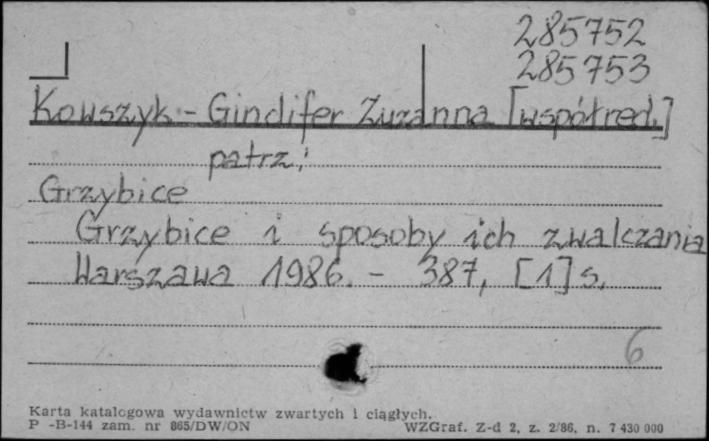 285752
285753
Kowszyk-Gindifer Zuzanna [współred.]
patrz:
Grzybice
Grzybice i sposoby ich zwalczania
Warszawa 1986. - 387, [1] s.
6
Karta katalogowa wydawnictw zwartych i ciągłych.
P -B-144 zam. nr 865/DW/ON WZGraf. Z-d 2, z. 2/86, n. 7 430 000